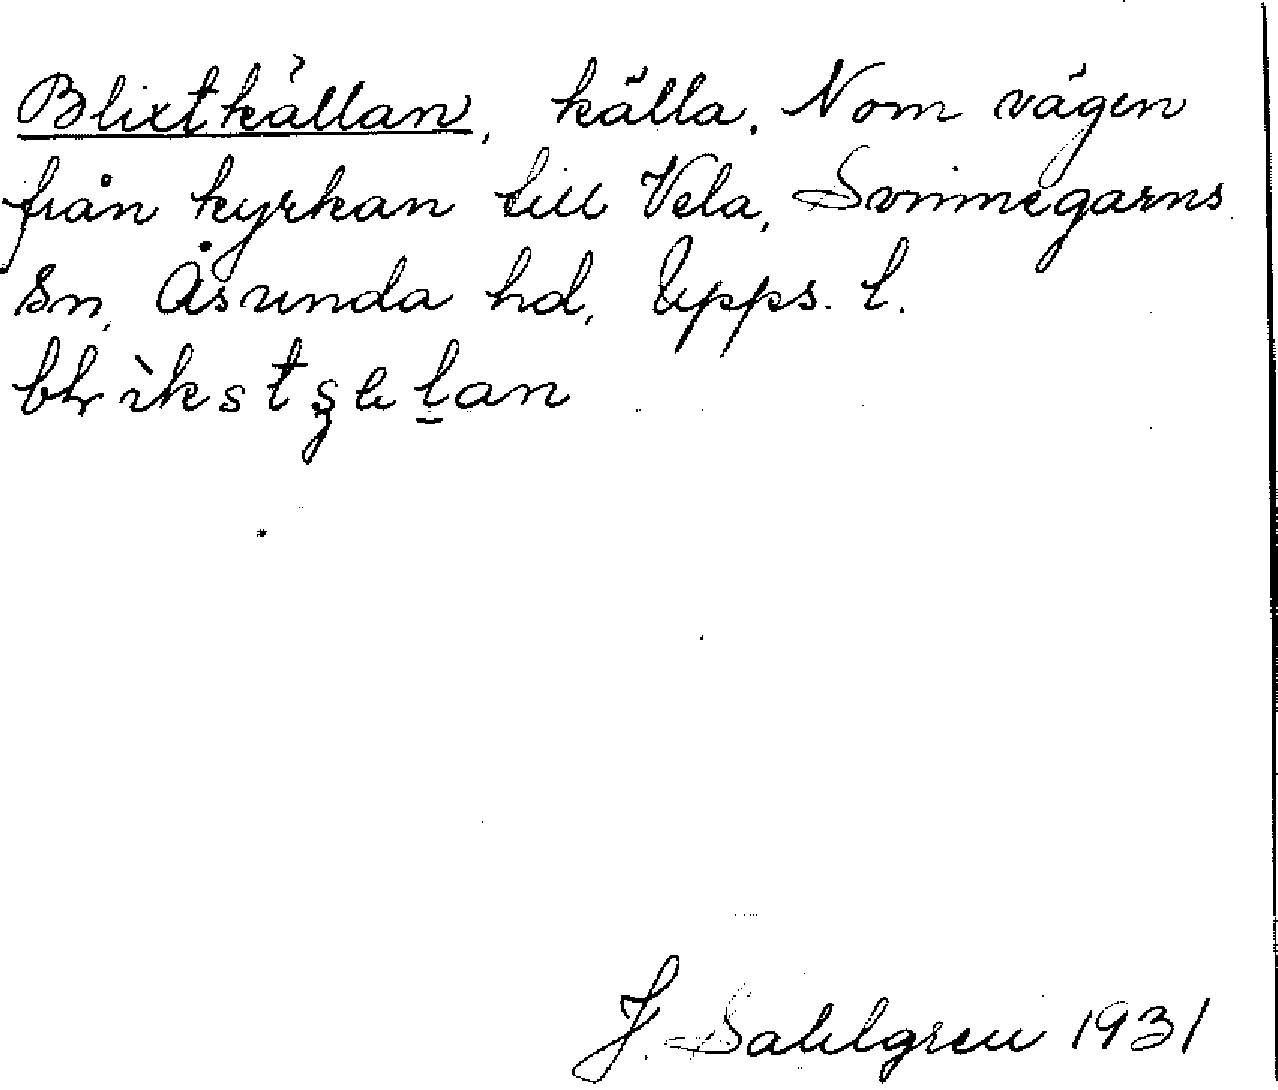 Blixtkällan, källa. N om vägen
från kyrkan till Vela, Svinnegarns
sn, Åsunda hd, Upps. l.
J. Sahlgren 1931